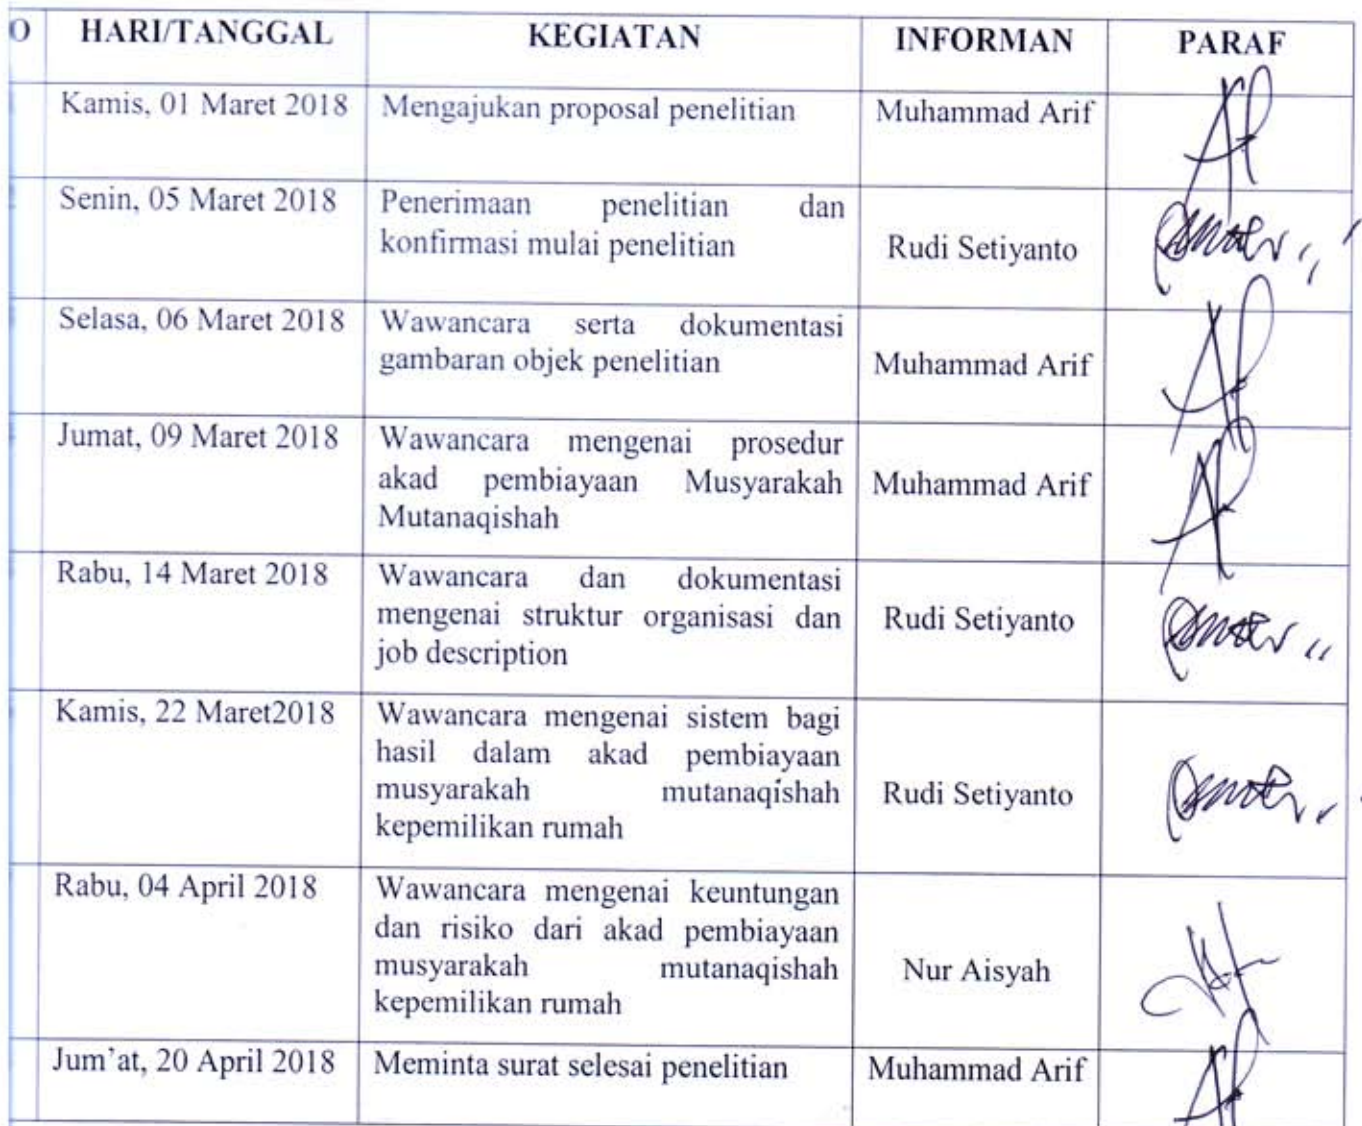 O HARI/TANGGAL KEGIATAN INFORMAN PARAF
Kamis, 01 Maret 2018 Mengajukan proposal penelitian Muhammad Arif
Senin, 05 Maret 2018 Penerimaan penelitian dan
konfirmasi mulai penelitian Rudi Setiyanto
Selasa, 06 Maret 2018 Wawancara serta dokumentasi
gambaran objek penelitian Muhammad Arif
Jumat, 09 Maret 2018 Wawancara mengenai prosedur
akad pembiayaan Musyarakah Muhammad Arif
Mutanaqishah
Rabu, 14 Maret 2018 Wawancara dan dokumentasi
mengenai struktur organisasi dan Rudi Setiyanto
job description
Kamis, 22 Maret2018 Wawancara mengenai sistem bagi
hasil dalam akad pembiayaan
musyarakah mutanaqishah Rudi Setiyanto
kepemilikan rumah
Rabu, 04 April 2018 Wawancara mengenai keuntungan
dan risiko dari akad pembiayaan
musyarakah mutanaqishah Nur Aisyah
kepemilikan rumah
Jum'at, 20 April 2018 Meminta surat selesai penelitian Muhammad Arif